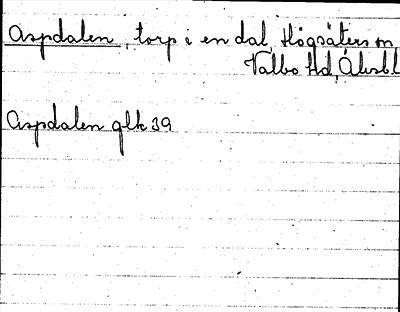 Aspdalen, torp i en dal, Högsäters sn,
Valbo Hd, Älvsbl
Aspdalen glk 39